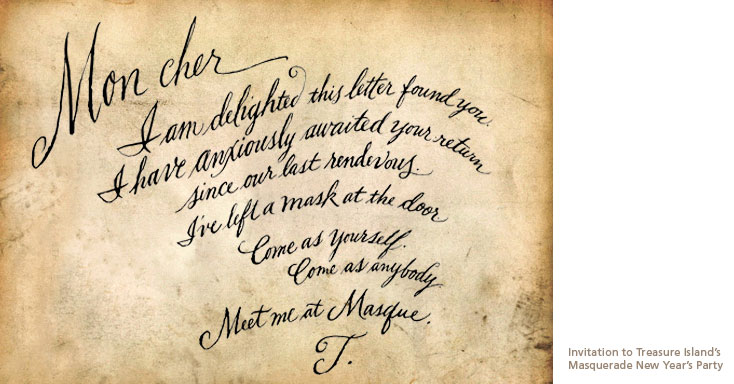 Mon cher
I am delighted this letter found you.
I have anxiously awaited your return
since our last rendevous.
I've left a mask at the door
Come as yourself.
Come as anybody
Meet me at Masque.
T.
Invitation to Treasure Island's
Masquerade New Year's Party